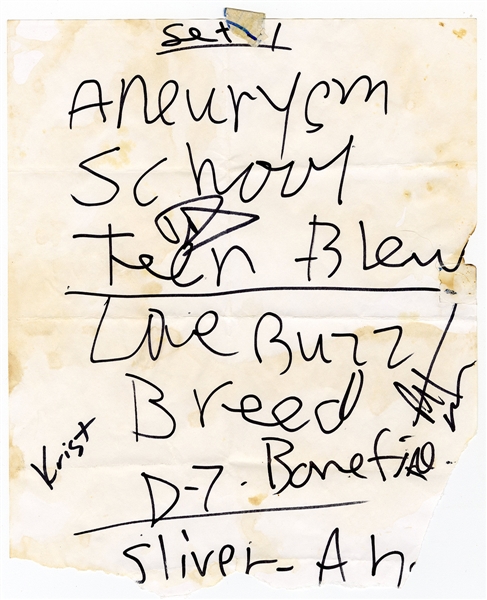 Set 1
Aneurysm
School
Teen Blew
Love Buzz
Breed
Krist
Bonefide.
D-7.
sliver- Ah.